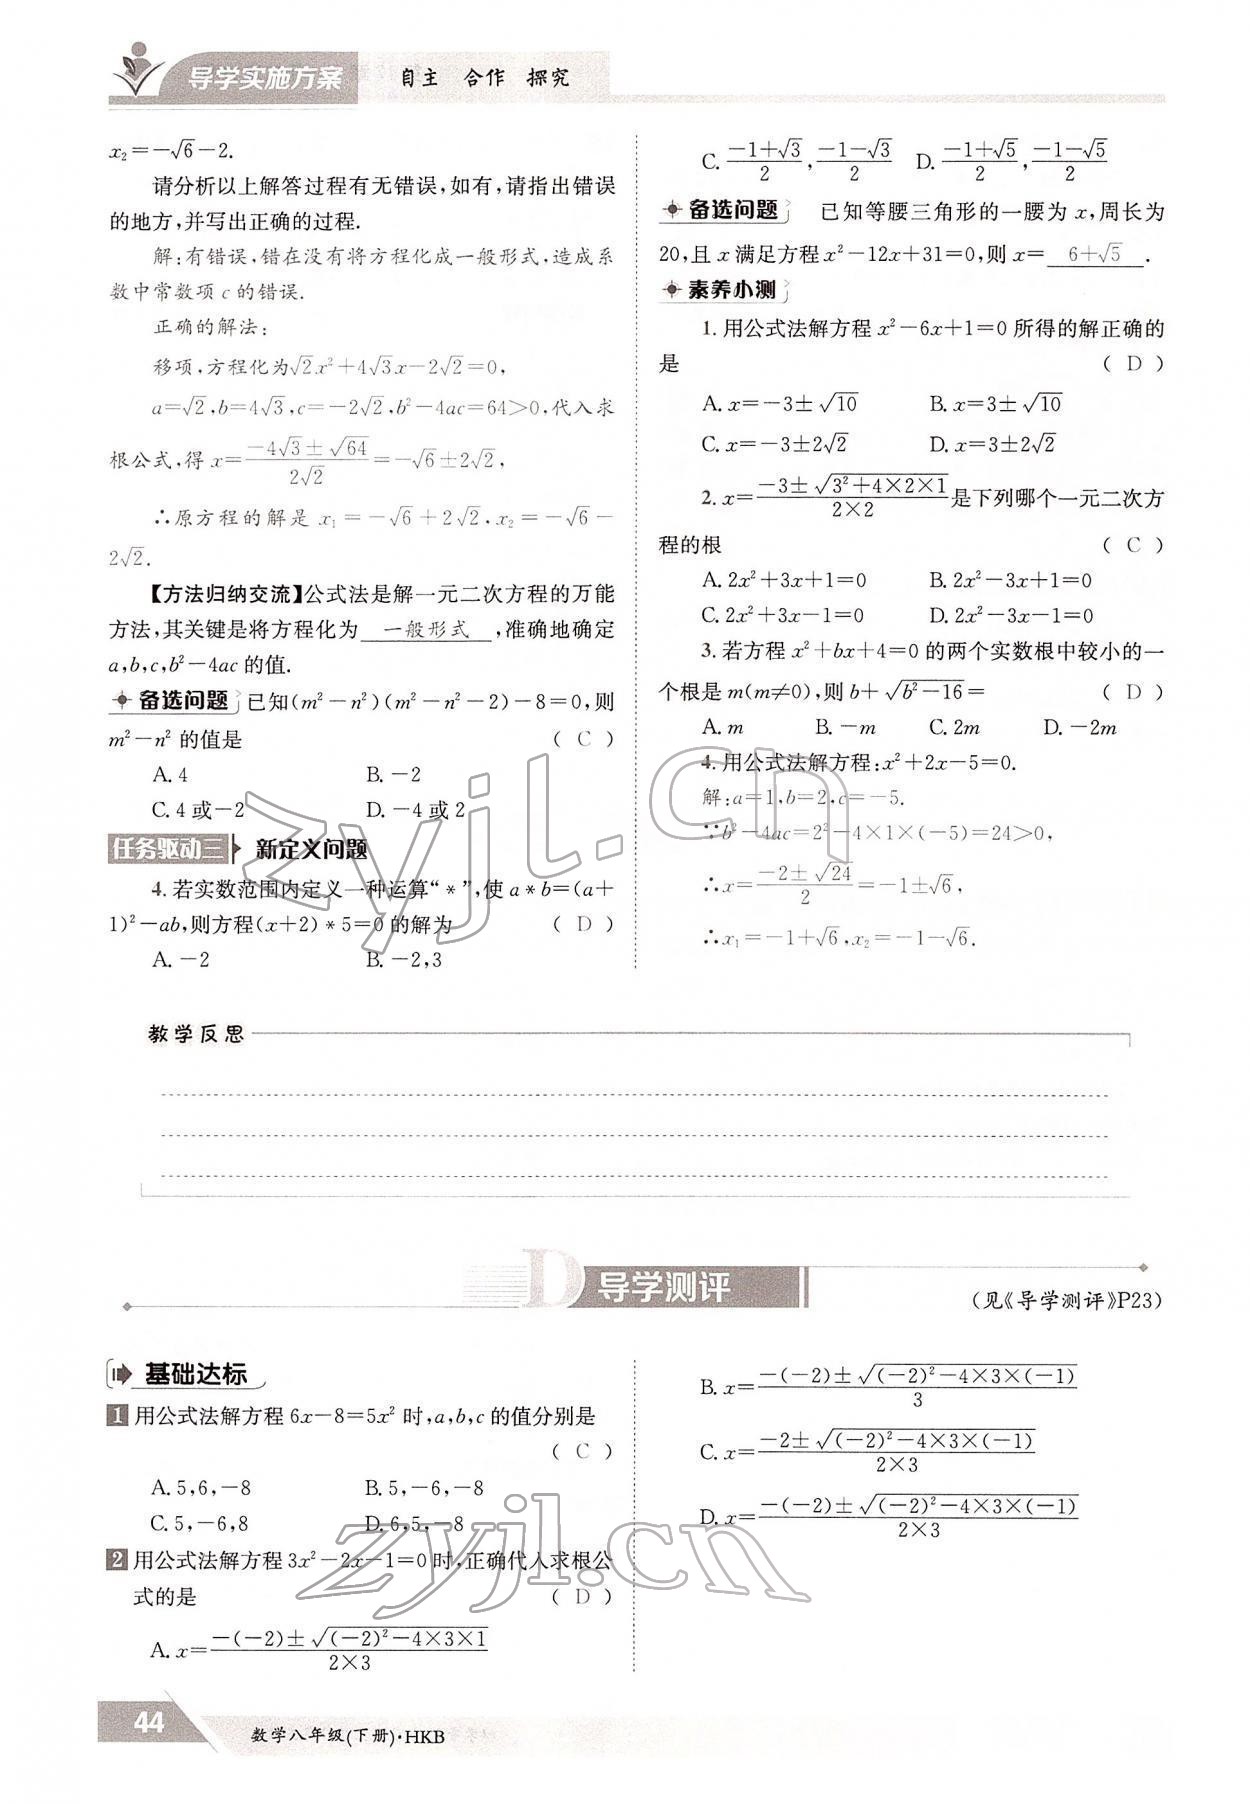 导学实施方案
自主 合作 探究
x₂=-√6-2.
请分析以上解答过程有无错误,如有,请指出错误
的地方,并写出正确的过程.
解:有错误,错在没有将方程化成一般形式,造成系
数中常数项 c 的错误.
正确的解法:
移项,方程化为√2x²+4√3x-2√2=0,
a=√2,b=4√3,c=-2√2,b²-4ac=64>0,代入求
根公式,得 x=(-4√3±√64)/(2√2)=-√6±2√2,
∴原方程的解是 x₁=-√6+2√2,x₂=-√6-
2√2.
【方法归纳交流】公式法是解一元二次方程的万能
方法,其关键是将方程化为 一般形式 ,准确地确定
a,b,c,b²-4ac 的值.
备选问题 已知(m²-n²)(m²-n²-2)-8=0,则
m²-n² 的值是 ( C )
A.4 B.-2
C.4 或-2 D.-4 或 2
任务驱动三 新定义问题
4.若实数范围内定义一种运算“*”,使 a*b=(a+
1)²-ab,则方程(x+2)*5=0 的解为 ( D )
A.-2 B.-2,3
C.(-1+√3)/2,(-1-√3)/2 D.(-1+√5)/2,(-1-√5)/2
备选问题 已知等腰三角形的一腰为 x,周长为
20,且 x 满足方程 x²-12x+31=0,则 x= 6+√5 .
素养小测
1.用公式法解方程 x²-6x+1=0 所得的解正确的
是 ( D )
A.x=-3±√10 B.x=3±√10
C.x=-3±2√2 D.x=3±2√2
2.x=(-3±√(3²+4×2×1))/(2×2)是下列哪个一元二次方
程的根 ( C )
A.2x²+3x+1=0 B.2x²-3x+1=0
C.2x²+3x-1=0 D.2x²-3x-1=0
3.若方程 x²+bx+4=0 的两个实数根中较小的一
个根是 m(m≠0),则 b+√(b²-16)= ( D )
A.m B.-m C.2m D.-2m
4.用公式法解方程:x²+2x-5=0.
解:a=1,b=2,c=-5.
∵b²-4ac=2²-4×1×(-5)=24>0,
∴x=(-2±√24)/2=-1±√6,
∴x₁=-1+√6,x₂=-1-√6.
教学反思
D 导学测评
(见《导学测评》P23)
基础达标
1 用公式法解方程 6x-8=5x² 时,a,b,c 的值分别是
( C )
A.5,6,-8 B.5,-6,-8
C.5,-6,8 D.6,5,-8
2 用公式法解方程 3x²-2x-1=0 时,正确代入求根公
式的是 ( D )
A.x=(-(-2)±√((-2)²-4×3×1))/(2×3)
B.x=(-(-2)±√((-2)²-4×3×(-1)))/3
C.x=(-2±√((-2)²-4×3×(-1)))/(2×3)
D.x=(-(-2)±√((-2)²-4×3×(-1)))/(2×3)
44
数学八年级(下册)·HKB
zyjl.cn
zyjl.cn